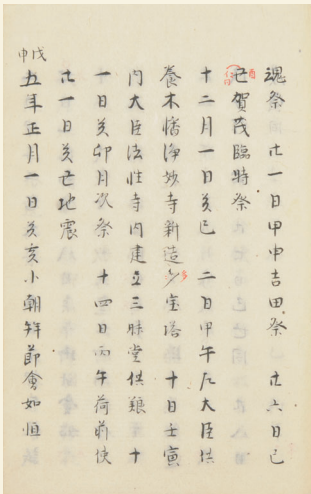 魂祭 廿一日甲申吉田祭 廿六日己
丑賀茂臨時祭
十二月一日癸巳 二日甲午左大臣供
養木幡浄妙寺新造多宝塔 十日壬寅
内大臣法性寺内建立三昧堂供養 十
一日癸卯月次祭 十四日丙午荷前使
廿一日癸丑地震
戊申
五年正月一日癸亥小朝拝節會如恒